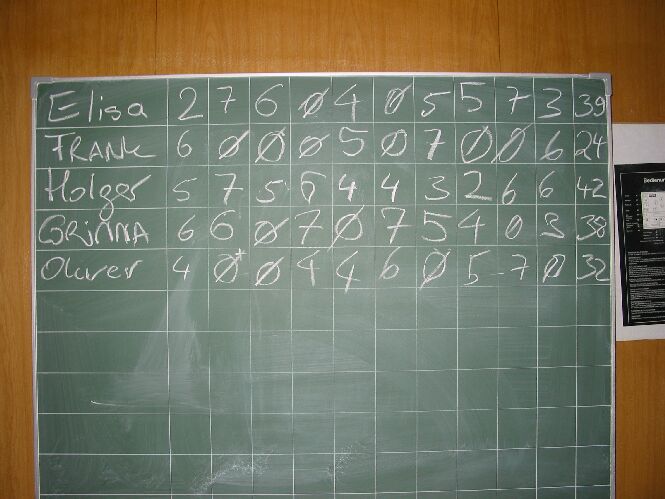 Elisa 2 7 6 Ø 4 Ø 5 5 7 3 39
FRANK 6 Ø Ø Ø 5 Ø 7 Ø Ø 6 24
Holger 5 7 5 6 4 4 3 2 6 6 42
GRIMMA 6 6 Ø 7 Ø 7 5 4 0 3 38
Oliver 4 Ø* Ø 4 4 6 Ø 5 7 Ø 32
Bedienun